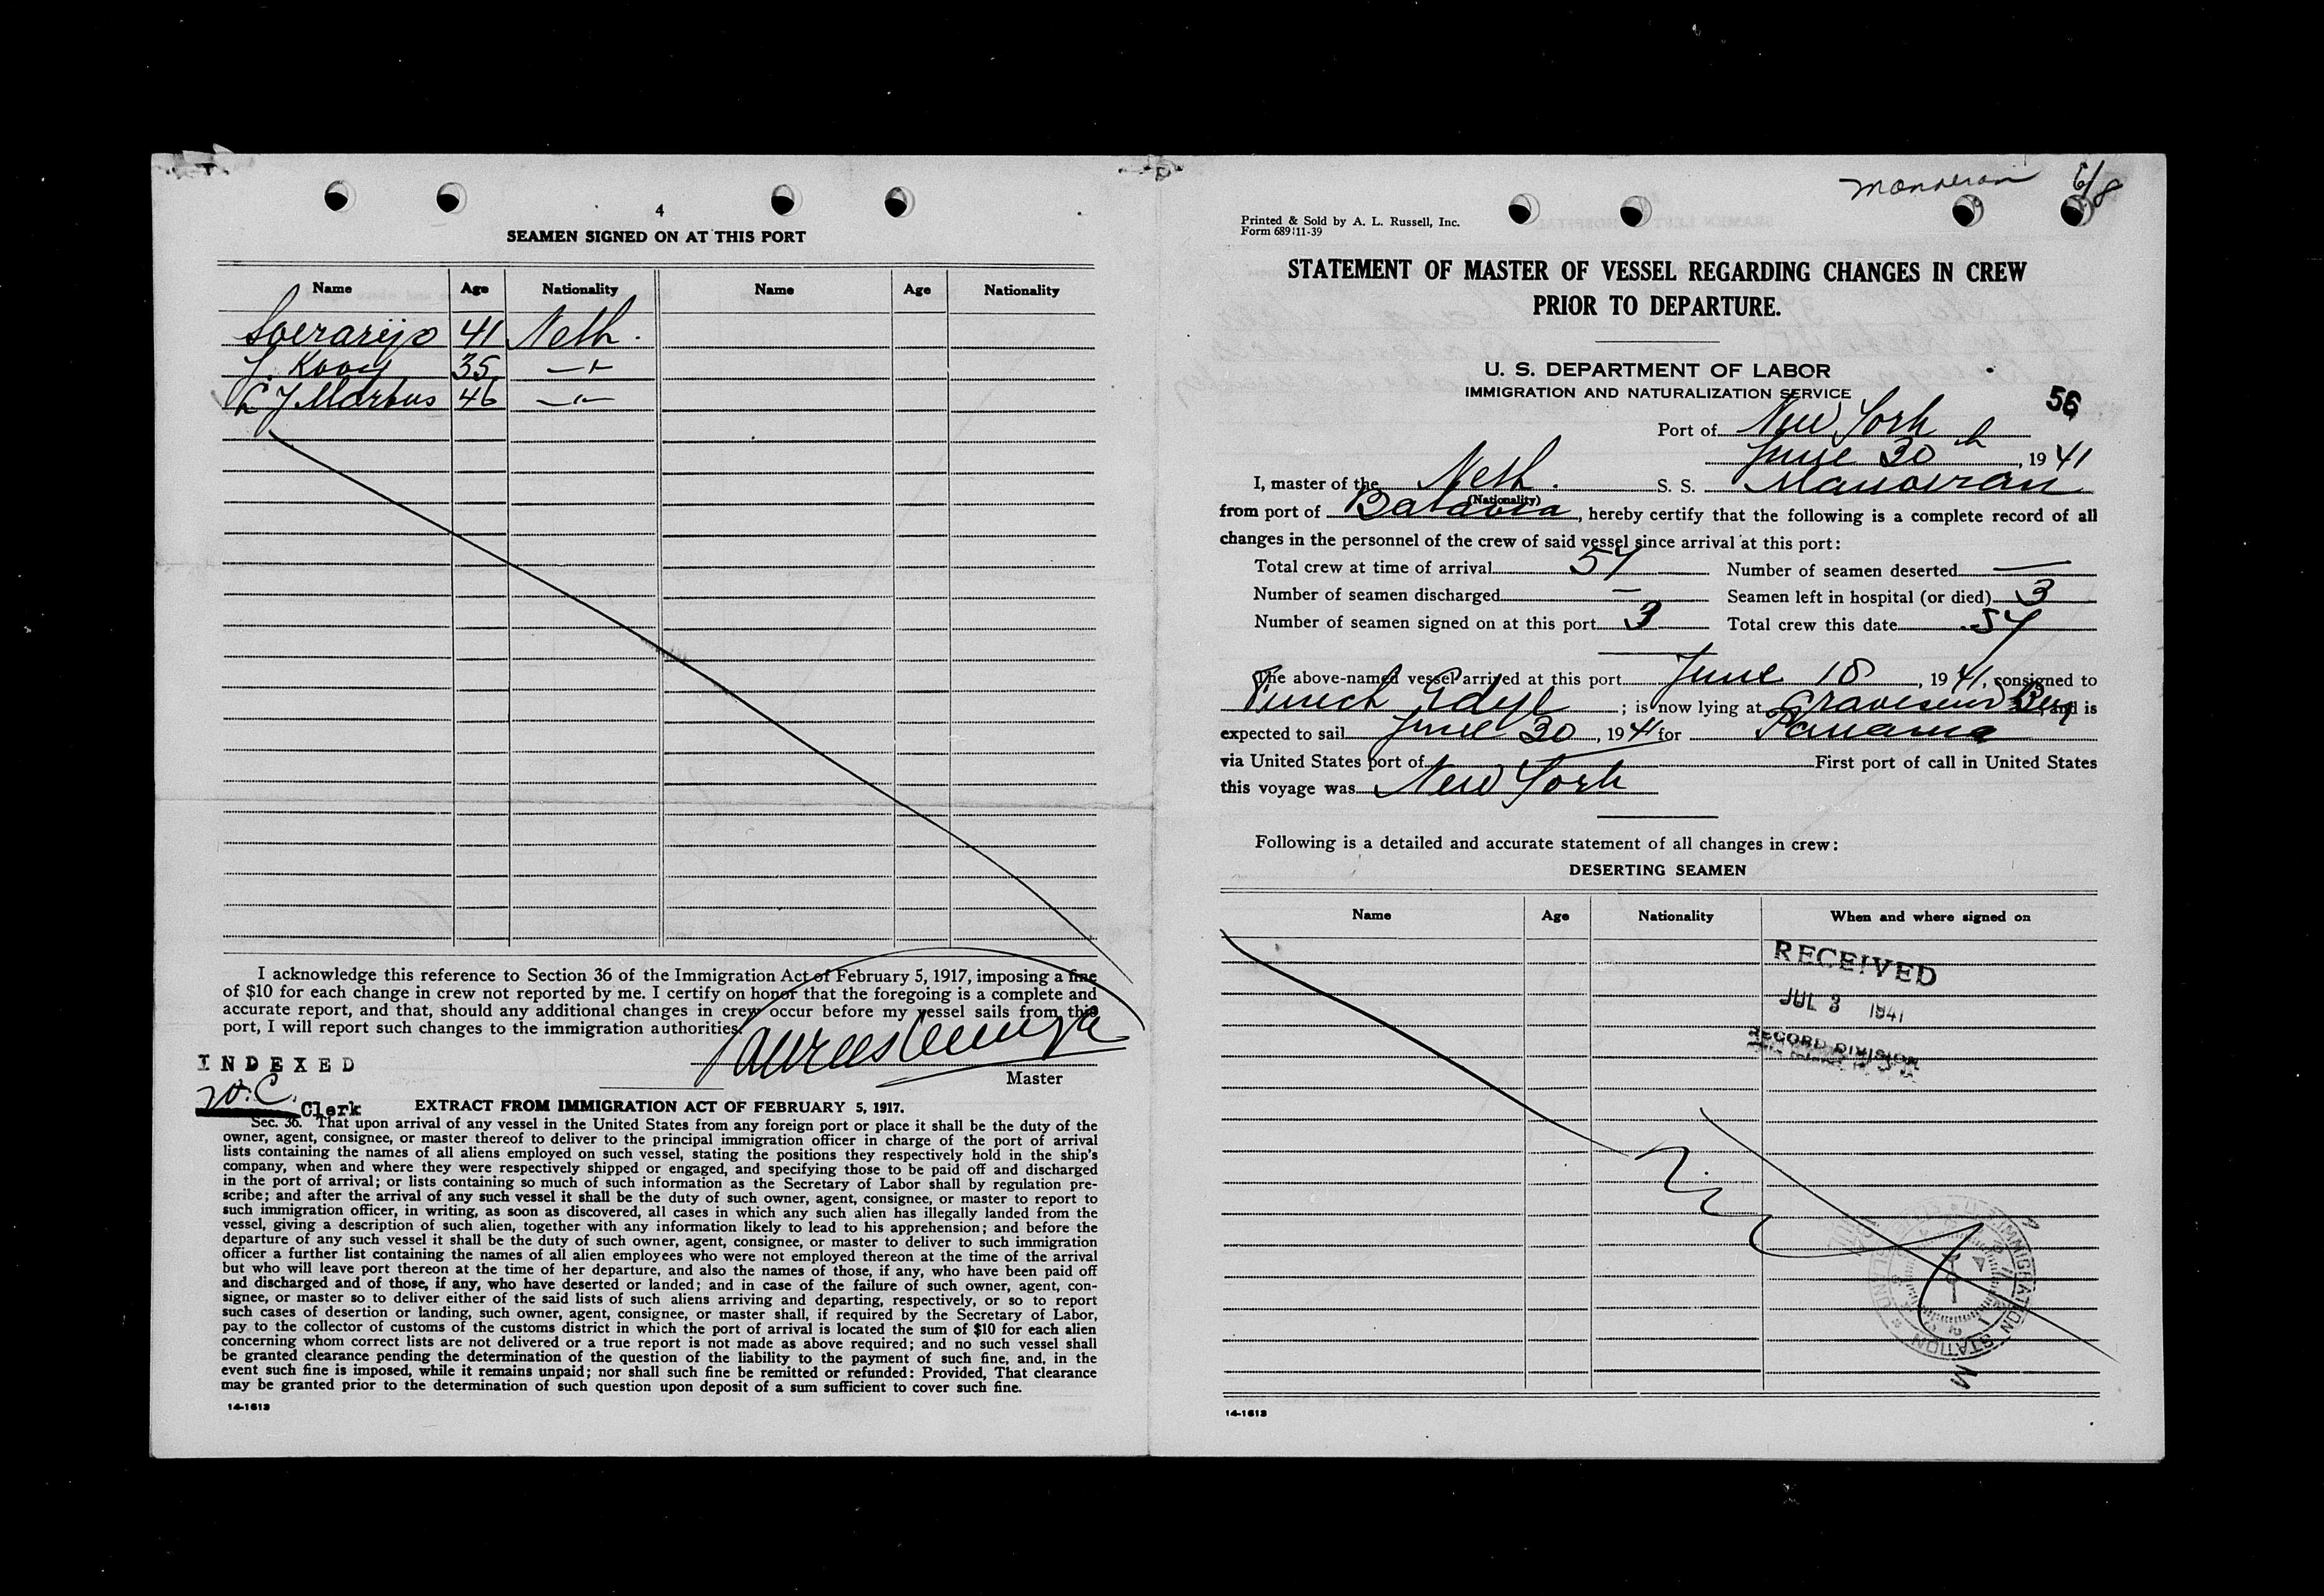 4
SEAMEN SIGNED ON AT THIS PORT
Name Age Nationality Name Age Nationality
Soerarijo 41 Neth.
J. Kooy 35 —"—
L J Marbus 46 —"—
I acknowledge this reference to Section 36 of the Immigration Act of February 5, 1917, imposing a fine
of $10 for each change in crew not reported by me. I certify on honor that the foregoing is a complete and
accurate report, and that, should any additional changes in crew occur before my vessel sails from this
port, I will report such changes to the immigration authorities.
Master
INDEXED
Clerk
EXTRACT FROM IMMIGRATION ACT OF FEBRUARY 5, 1917.
Sec. 36. That upon arrival of any vessel in the United States from any foreign port or place it shall be the duty of the
owner, agent, consignee, or master thereof to deliver to the principal immigration officer in charge of the port of arrival
lists containing the names of all aliens employed on such vessel, stating the positions they respectively hold in the ship's
company, when and where they were respectively shipped or engaged, and specifying those to be paid off and discharged
in the port of arrival; or lists containing so much of such information as the Secretary of Labor shall by regulation pre-
scribe; and after the arrival of any such vessel it shall be the duty of such owner, agent, consignee, or master to report to
such immigration officer, in writing, as soon as discovered, all cases in which any such alien has illegally landed from the
vessel, giving a description of such alien, together with any information likely to lead to his apprehension; and before the
departure of any such vessel it shall be the duty of such owner, agent, consignee, or master to deliver to such immigration
officer a further list containing the names of all alien employees who were not employed thereon at the time of the arrival
but who will leave port thereon at the time of her departure, and also the names of those, if any, who have been paid off
and discharged and of those, if any, who have deserted or landed; and in case of the failure of such owner, agent, con-
signee, or master so to deliver either of the said lists of such aliens arriving and departing, respectively, or so to report
such cases of desertion or landing, such owner, agent, consignee, or master shall, if required by the Secretary of Labor,
pay to the collector of customs of the customs district in which the port of arrival is located the sum of $10 for each alien
concerning whom correct lists are not delivered or a true report is not made as above required; and no such vessel shall
be granted clearance pending the determination of the question of the liability to the payment of such fine, and, in the
event such fine is imposed, while it remains unpaid; nor shall such fine be remitted or refunded: Provided, That clearance
may be granted prior to the determination of such question upon deposit of a sum sufficient to cover such fine.
14-1613
Manoeran 6/18
Printed & Sold by A. L. Russell, Inc.
Form 689 11-39
STATEMENT OF MASTER OF VESSEL REGARDING CHANGES IN CREW
PRIOR TO DEPARTURE.
U. S. DEPARTMENT OF LABOR
IMMIGRATION AND NATURALIZATION SERVICE
56
Port of New York
June 30th, 1941
I, master of the Neth. S. S. Manoeran
(Nationality)
from port of Batavia, hereby certify that the following is a complete record of all
changes in the personnel of the crew of said vessel since arrival at this port:
Total crew at time of arrival 57 Number of seamen deserted —
Number of seamen discharged — Seamen left in hospital (or died) 3
Number of seamen signed on at this port 3 Total crew this date 57
The above-named vessel arrived at this port June 18, 1941, consigned to
Funch Edye; is now lying at Gravesend Bay, and is
expected to sail June 30, 1941 for Panama
via United States port of First port of call in United States
this voyage was New York
Following is a detailed and accurate statement of all changes in crew:
DESERTING SEAMEN
Name Age Nationality When and where signed on
RECEIVED
JUL 3 1941
RECORD DIVISION
U. S. IMMIGRATION STATION
14-1613